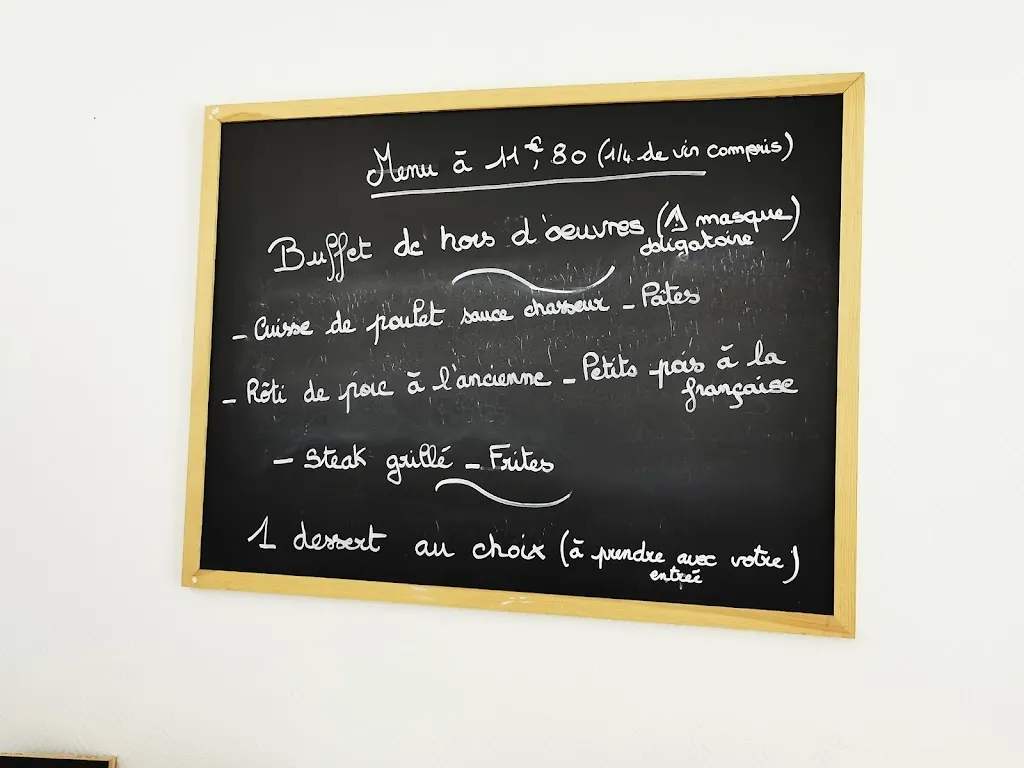 Menu à 11€,80 (1/4 de vin compris)
Buffet de hors d'œuvres (1 masque)
obligatoire
- Cuisse de poulet sauce chasseur - Pâtes
- Rôti de porc à l'ancienne - Petits pois à la
française
- Steak grillé - Frites
1 dessert au choix (à prendre avec votre)
entrée